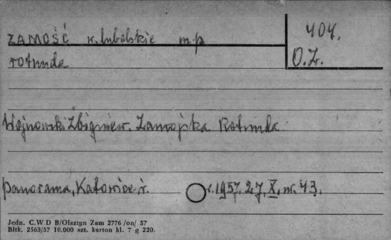 ZAMOŚĆ k. lubelskie m. p
404.
rotunda
O.Z.
Wojnowski Zbigniew. Zamojska Rotunda
Panorama, Katowice r. r. 1957. 27. X, nr. 43.
Jedn. C.W D B/Olsztyn Zam 2776 /on/ 57
Bltk. 2563/57 10.000 szt. karton kl. 7 g 220.